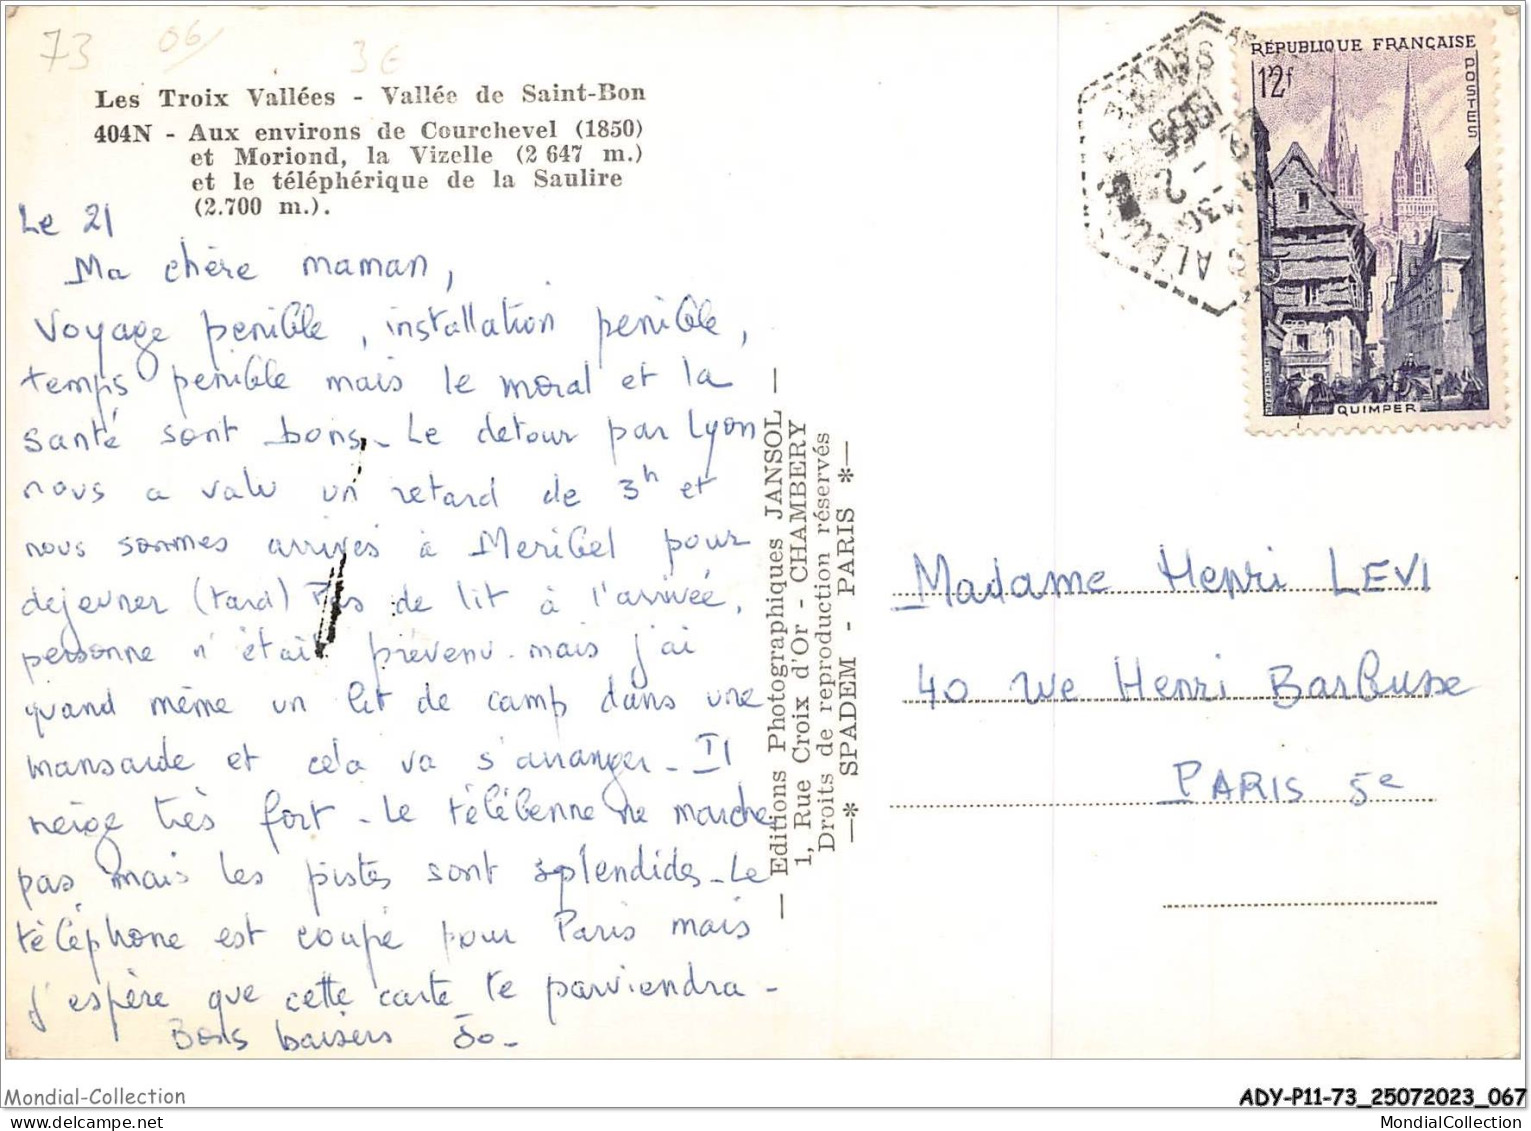 73 06 3€
Les Troix Vallées - Vallée de Saint-Bon
404N - Aux environs de Courchevel (1850)
et Moriond, la Vizelle (2 647 m.)
et le téléphérique de la Saulire
(2.700 m.).
Le 21
Ma chère maman,
Voyage penible, installation penible,
temps penible mais le moral et la
santé sont bons. Le detour par Lyon
nous a valu un retard de 3h et
nous sommes arrivés à Meribel pour
dejeuner (tard) Pas de lit à l'arrivée,
personne n'était prévenu. mais j'ai
quand même un lit de camp dans une
mansarde et cela va s'arranger - Il
neige très fort - Le télébenne ne marche
pas mais les pistes sont splendides - Le
téléphone est coupé pour Paris mais
j'espère que cette carte te parviendra -
Bons baisers Jo -
— Editions Photographiques JANSOL —
1, Rue Croix d'Or - CHAMBERY
Droits de reproduction réservés
—* SPADEM - PARIS *—
RÉPUBLIQUE FRANÇAISE
12f
POSTES
QUIMPER
Madame Henri LEVI
40 rue Henri Barbusse
PARIS 5e
Mondial-Collection
ADY-P11-73_25072023_067
MondialCollection